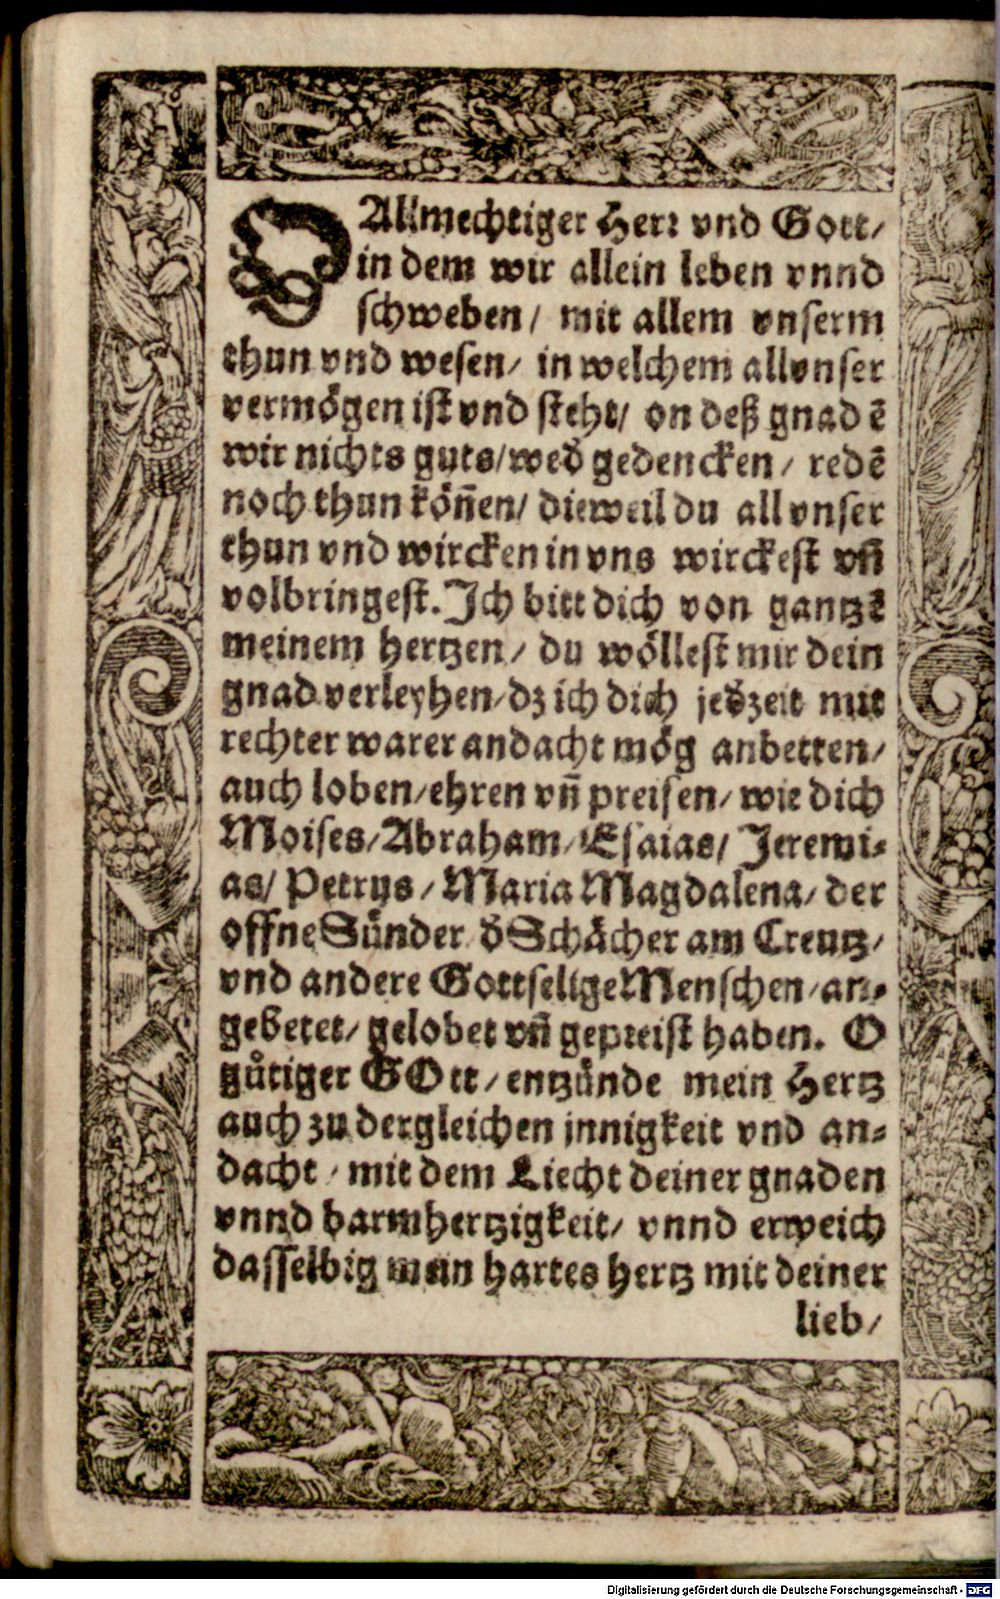 O Allmechtiger Herr vnd Gott/
in dem wir allein leben vnnd
schweben/ mit allem vnserm
thun vnd wesen/ in welchem all vnser
vermögen ist vnd steht/ on deß gnadẽ
wir nichts guts/ wed̃ gedencken/ redẽ
noch thun köñen/ dieweil du all vnser
thun vnd wircken in vns wirckest vñ
volbringest. Ich bitt dich von gantzẽ
meinem hertzen/ du wöllest mir dein
gnad verleyhen/ dz ich dich jed̃zeit mit
rechter warer andacht mög anbetten/
auch loben/ ehren vñ preisen/ wie dich
Moises/ Abraham/ Esaias/ Jeremi-
as/ Petrus/ Maria Magdalena/ der
offne Sünder/ d̃ Schächer am Creutz/
vnd andere Gottselige Menschen/ an-
gebetet/ gelobet vñ gepreist haben. O
gůtiger GOtt/ entzünde mein Hertz
auch zu dergleichen jnnigkeit vnd an-
dacht/ mit dem Liecht deiner gnaden
vnnd barmhertzigkeit/ vnnd erweich
dasselbig mein hartes hertz mit deiner
lieb/
Digitalisierung gefördert durch die Deutsche Forschungsgemeinschaft - DFG